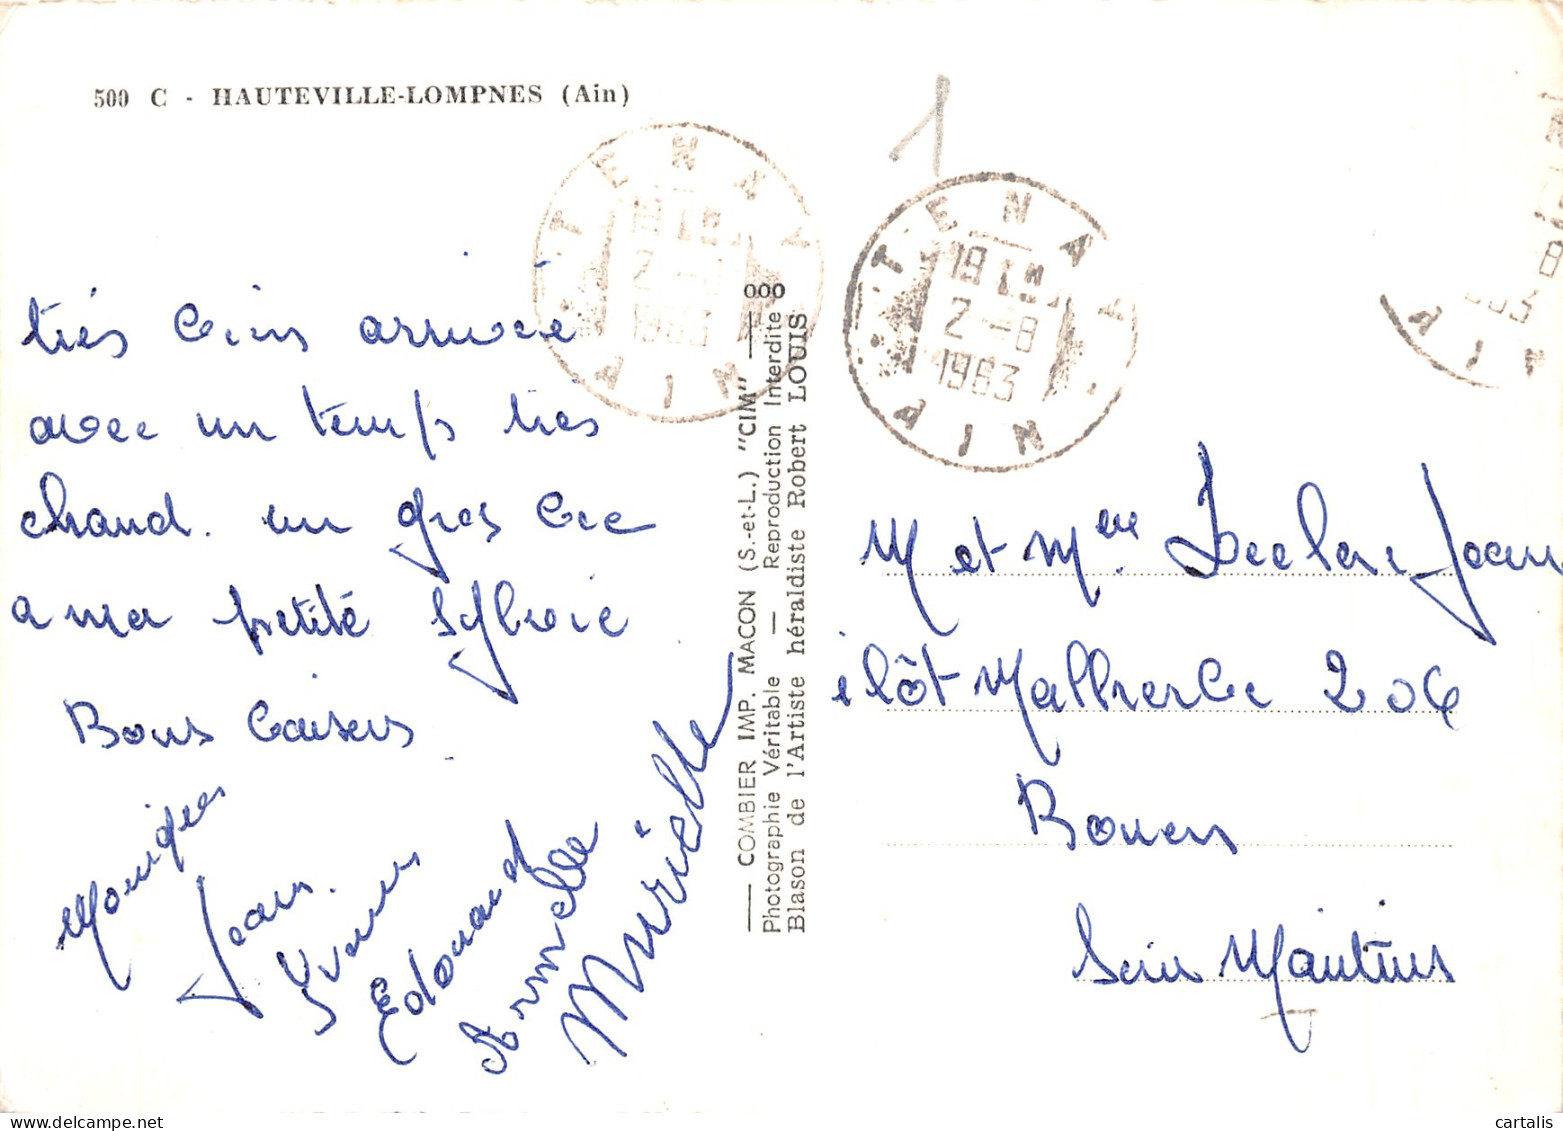 500 C - HAUTEVILLE-LOMPNES (Ain)
1
TENAY
18 H
2 - 8
1963
AIN
TENAY
18 H
2 - 8
1963
AIN
8
963
AIN
très bien arrivée
avec un temps très
chaud. un gros bec
a ma petite Sylvie
Bons baisers
Monique
Jean.
Yvonne
Edouard
Armelle
Murielle
— COMBIER IMP. MACON (S.-et-L.) "CIM" — 000
Photographie Véritable — Reproduction Interdite
Blason de l'Artiste héraldiste Robert LOUIS
M et Mme Leclerc Jean
ilôt Malherbe 206
Rouen
Sein Maritins
cartalis